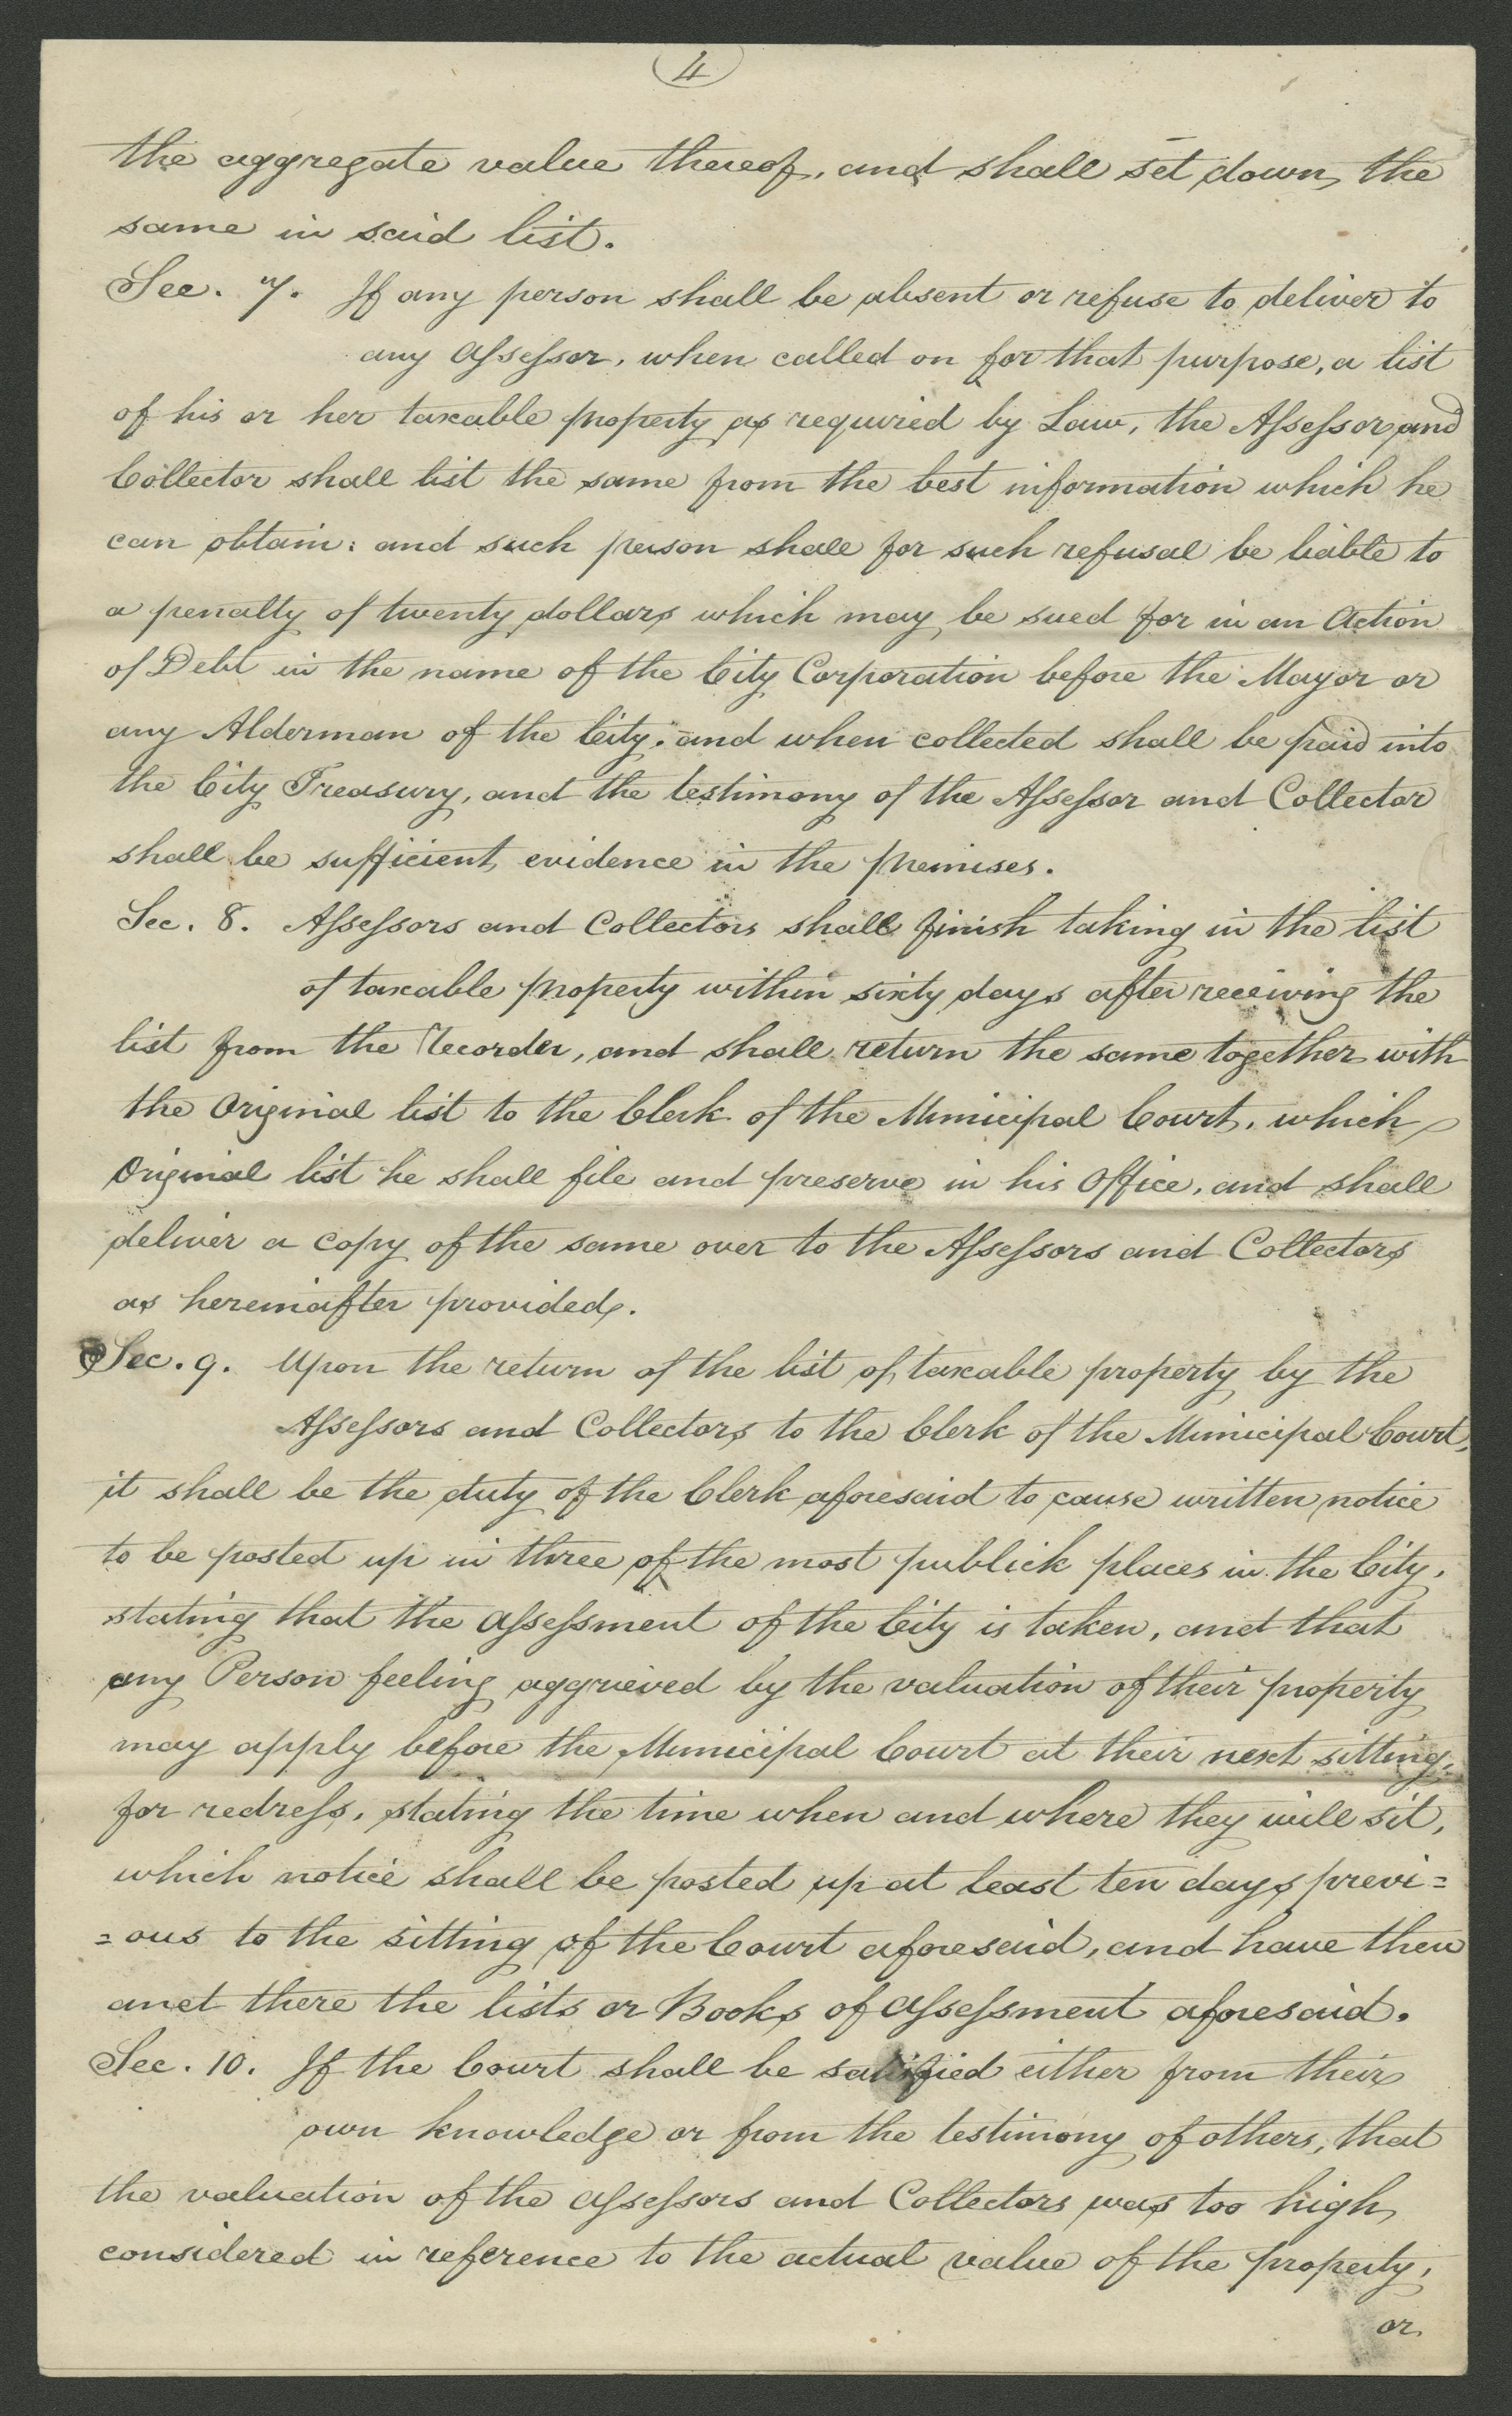 4
the aggregate value thereof, and shall set down the
same in said list.
Sec. 7. If any person shall be absent or refuse to deliver to
any Assessor, when called on for that purpose, a list
of his or her taxable property as required by Law, the Assessor and
Collector shall list the same from the best information which he
can obtain: and such person shall for such refusal be liable to
a penalty of twenty dollars which may be sued for in an Action
of Debt in the name of the City Corporation before the Mayor or
any Alderman of the City; and when collected shall be paid into
the City Treasury, and the testimony of the Assessor and Collector
shall be sufficient evidence in the premises.
Sec. 8. Assessors and Collectors shall finish taking in the list
of taxable property within sixty days after receiving the
list from the Recorder, and shall return the same together with
the Original list to the Clerk of the Municipal Court, which
Original list he shall file and preserve in his Office, and shall
deliver a copy of the same over to the Assessors and Collectors
as hereinafter provided.
Sec. 9. Upon the return of the list of taxable property by the
Assessors and Collectors to the Clerk of the Municipal Court,
it shall be the duty of the Clerk aforesaid to cause written notice
to be posted up in three of the most publick places in the City,
stating that the Assessment of the City is taken, and that
any Person feeling aggrieved by the valuation of their property
may apply before the Municipal Court at their next sitting,
for redress, stating the time when and where they will sit,
which notice shall be posted up at least ten days previ=
=ous to the sitting of the Court aforesaid, and have then
and there the lists or Books of Assessment aforesaid.
Sec. 10. If the Court shall be satisfied either from their
own knowledge or from the testimony of others, that
the valuation of the Assessors and Collectors was too high,
considered in reference to the actual value of the property,
or